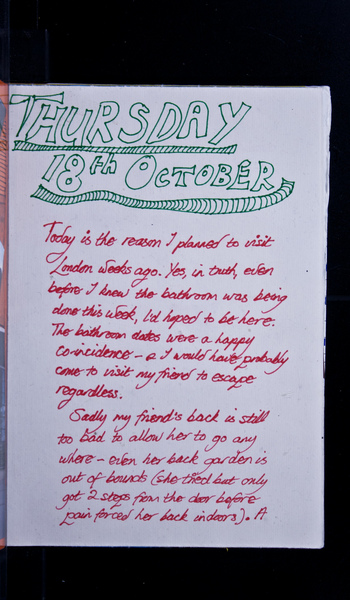 THURSDAY
18th OCTOBER
Today is the reason I planned to visit
London weeks ago. Yes, in truth, even
before I knew the bathroom was being
done this week, I'd hoped to be here.
The bathroom dates were a happy
co-incidence - I would have probably
come to visit my friend to escape
regardless.
Sadly my friend's back is still
too bad to allow her to go any
where - even her back garden is
out of bounds (she tried but only
got 2 steps from the door before
pain forced her back indoors). A